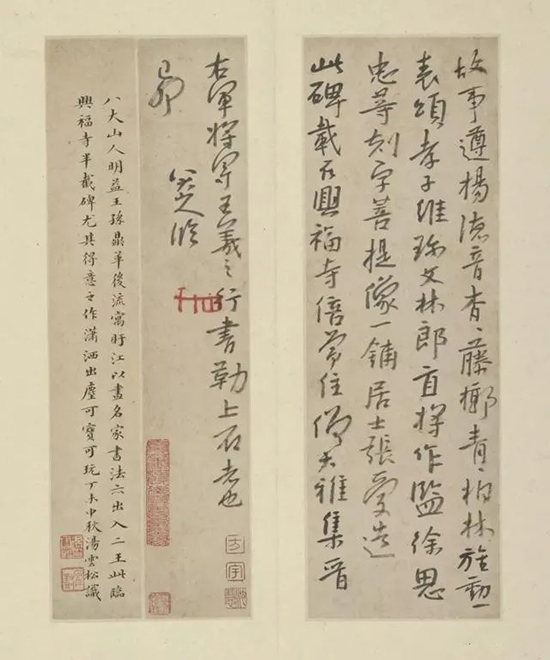 故事遵揚德音杳、藤榔青、柏林旌勳
表頌孝子維珍文林郎直將作監徐思
忠等刻字菩提像一鋪居士張愛造
此碑載在興福寺倍常住僧大雅集晉
右軍將軍王羲之行書勒上石者也
己卯
八大山人臨
八大山人明益王孫鼎革後流寓盱江以畫名家書法亦出入二王此臨
興福寺半截碑尤其得意之作瀟洒出塵可寶可玩丁未中秋湯雲松識
方宇